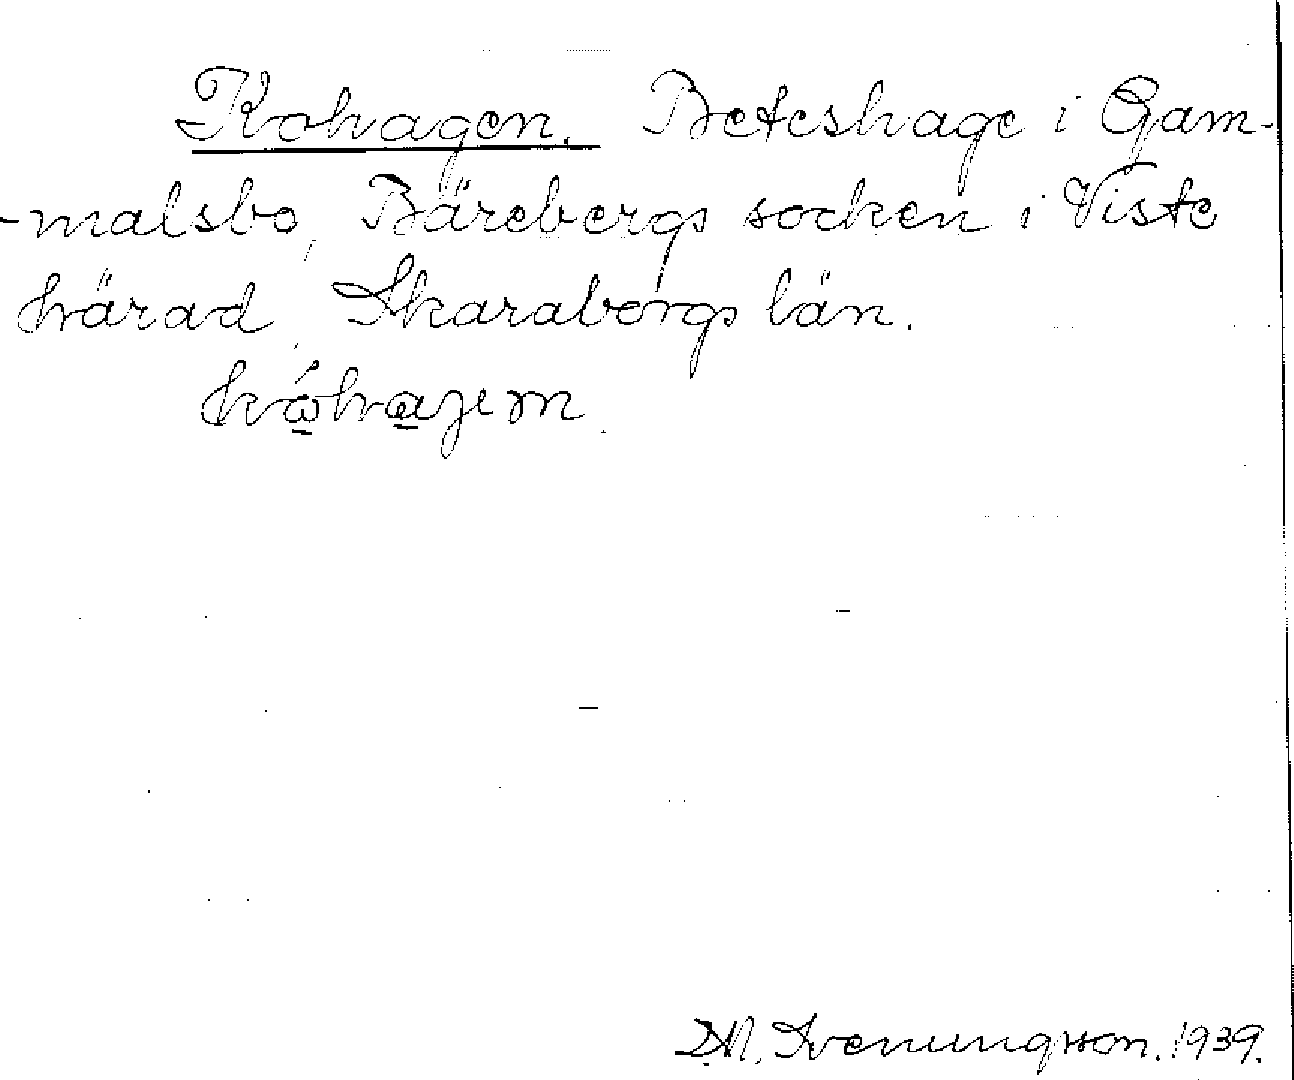 Kohagen. Beteshage i Gam-
-malsbo, Bärebergs socken i Viste
härad, Skaraborgs län.
D.N. Svenungsson. 1939.